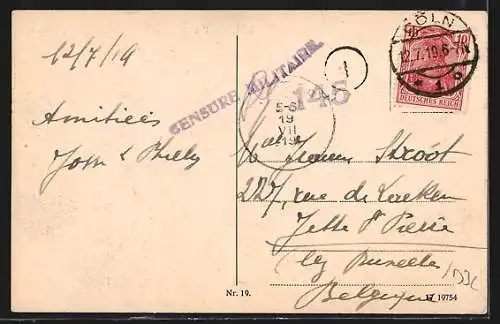 12/7/19
Amitiées
CENSURE MILITAIRE.
145
1
5-6
19
VII
19
CÖLN
12.7.19.6-7N
* 1 o
10
10
DEUTSCHES REICH
Stroot
227, rue de Laeken
Jette St Pierre
lez Bruxelles
Belgique
Nr. 19.
17 19754